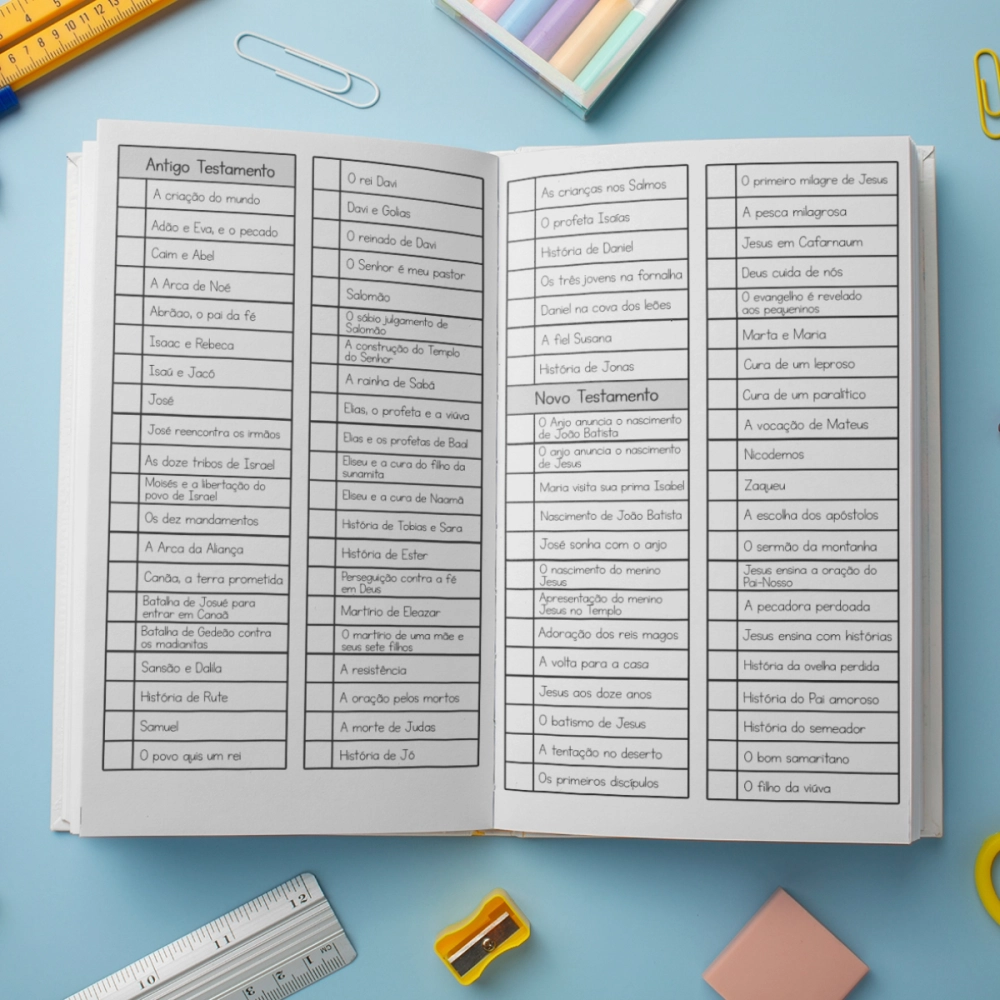 Antigo Testamento
A criação do mundo
Adão e Eva, e o pecado
Caim e Abel
A Arca de Noé
Abrãao, o pai da fé
Isaac e Rebeca
Isaú e Jacó
José
José reencontra os irmãos
As doze tribos de Israel
Moisés e a libertação do
povo de Israel
Os dez mandamentos
A Arca da Aliança
Canãa, a terra prometida
Batalha de Josué para
entrar em Canaã
Batalha de Gedeão contra
os madianitas
Sansão e Dalila
História de Rute
Samuel
O povo quis um rei
O rei Davi
Davi e Golias
O reinado de Davi
O Senhor é meu pastor
Salomão
O sábio julgamento de
Salomão
A construção do Templo
do Senhor
A rainha de Sabá
Elias, o profeta e a viúva
Elias e os profetas de Baal
Eliseu e a cura do filho da
sunamita
Eliseu e a cura de Naamã
História de Tobias e Sara
História de Ester
Perseguição contra a fé
em Deus
Martírio de Eleazar
O martírio de uma mãe e
seus sete filhos
A resistência
A oração pelos mortos
A morte de Judas
História de Jó
As crianças nos Salmos
O profeta Isaías
História de Daniel
Os três jovens na fornalha
Daniel na cova dos leões
A fiel Susana
História de Jonas
Novo Testamento
O Anjo anuncia o nascimento
de João Batista
O anjo anuncia o nascimento
de Jesus
Maria visita sua prima Isabel
Nascimento de João Batista
José sonha com o anjo
O nascimento do menino
Jesus
Apresentação do menino
Jesus no Templo
Adoração dos reis magos
A volta para a casa
Jesus aos doze anos
O batismo de Jesus
A tentação no deserto
Os primeiros discípulos
O primeiro milagre de Jesus
A pesca milagrosa
Jesus em Cafarnaum
Deus cuida de nós
O evangelho é revelado
aos pequeninos
Marta e Maria
Cura de um leproso
Cura de um paralítico
A vocação de Mateus
Nicodemos
Zaqueu
A escolha dos apóstolos
O sermão da montanha
Jesus ensina a oração do
Pai-Nosso
A pecadora perdoada
Jesus ensina com histórias
História da ovelha perdida
História do Pai amoroso
História do semeador
O bom samaritano
O filho da viúva
10 11 12
3 2 1 CM